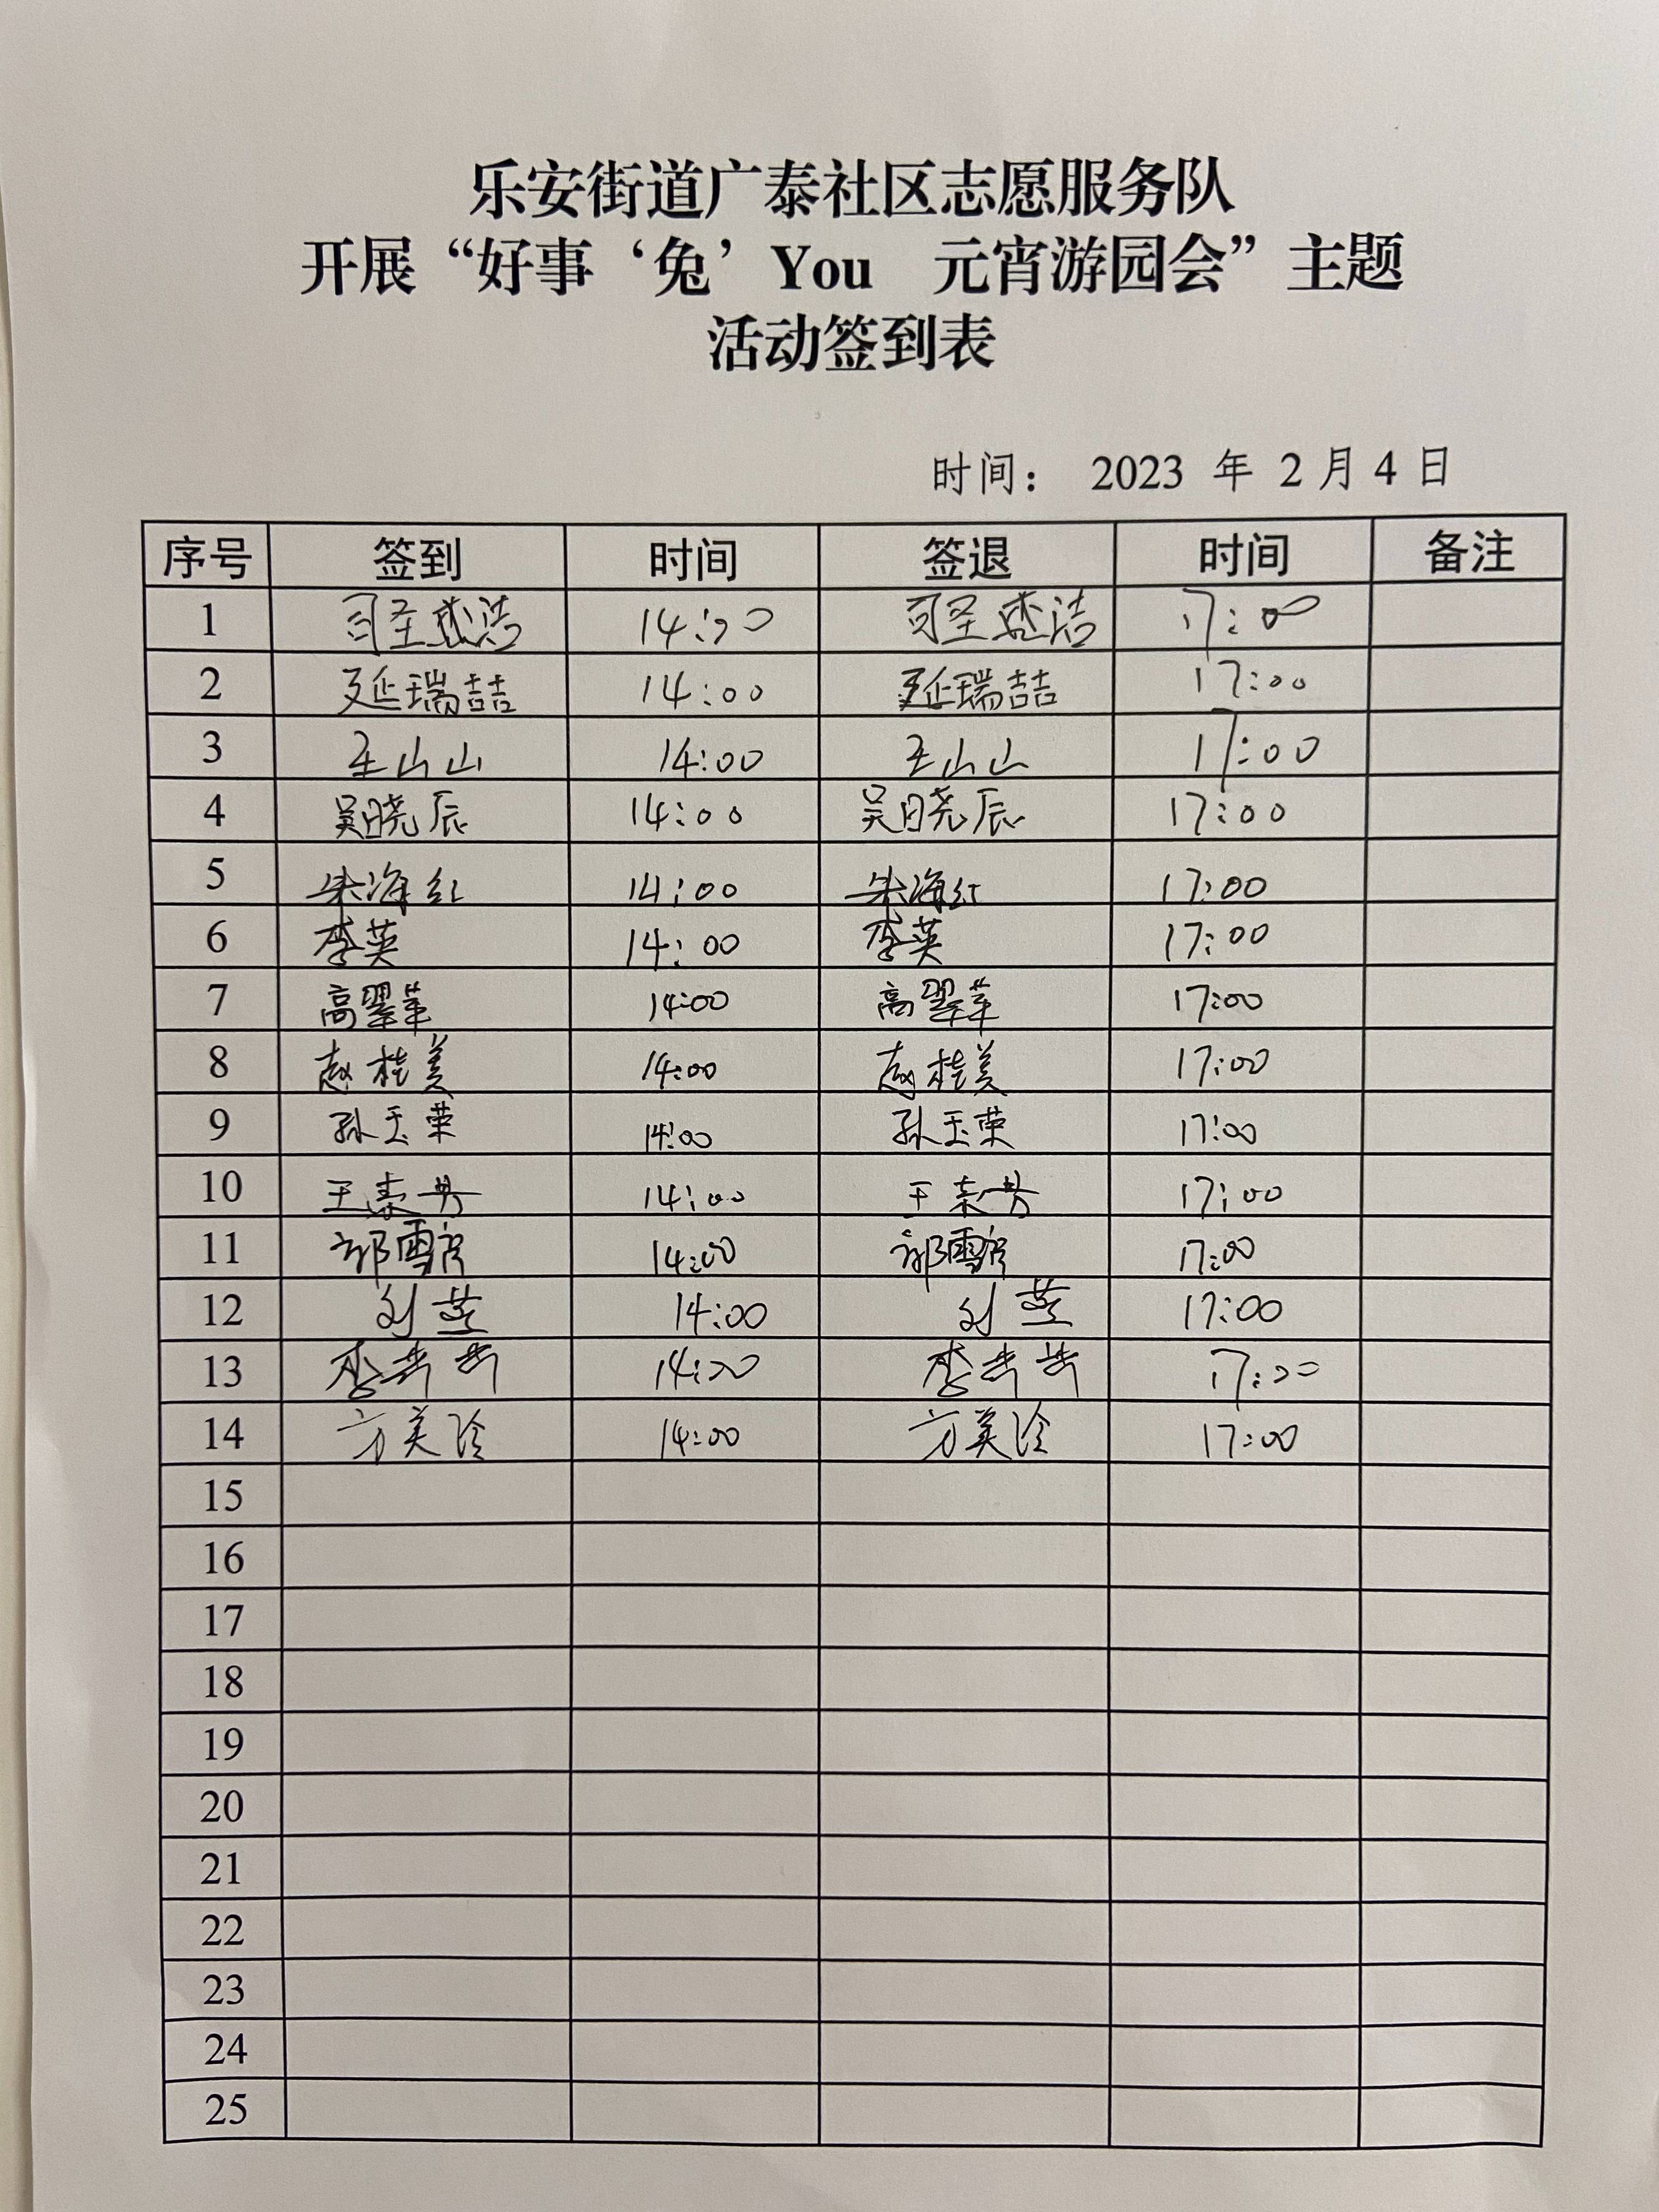 乐安街道广泰社区志愿服务队
开展“好事‘兔’You 元宵游园会”主题
活动签到表
时间： 2023 年 2 月 4 日
序号 签到 时间 签退 时间 备注
1 14:00 17:00
2 延瑞喆 14:00 延瑞喆 17:00
3 王山山 14:00 王山山 17:00
4 吴晓辰 14:00 吴晓辰 17:00
5 朱海红 14:00 朱海红 17:00
6 李英 14:00 李英 17:00
7 高翠苹 14:00 高翠苹 17:00
8 赵桂美 14:00 赵桂美 17:00
9 孙玉荣 14:00 孙玉荣 17:00
10 14:00 17:00
11 14:00 17:00
12 刘燕 14:00 刘燕 17:00
13 14:00 17:00
14 方美玲 14:00 方美玲 17:00
15
16
17
18
19
20
21
22
23
24
25